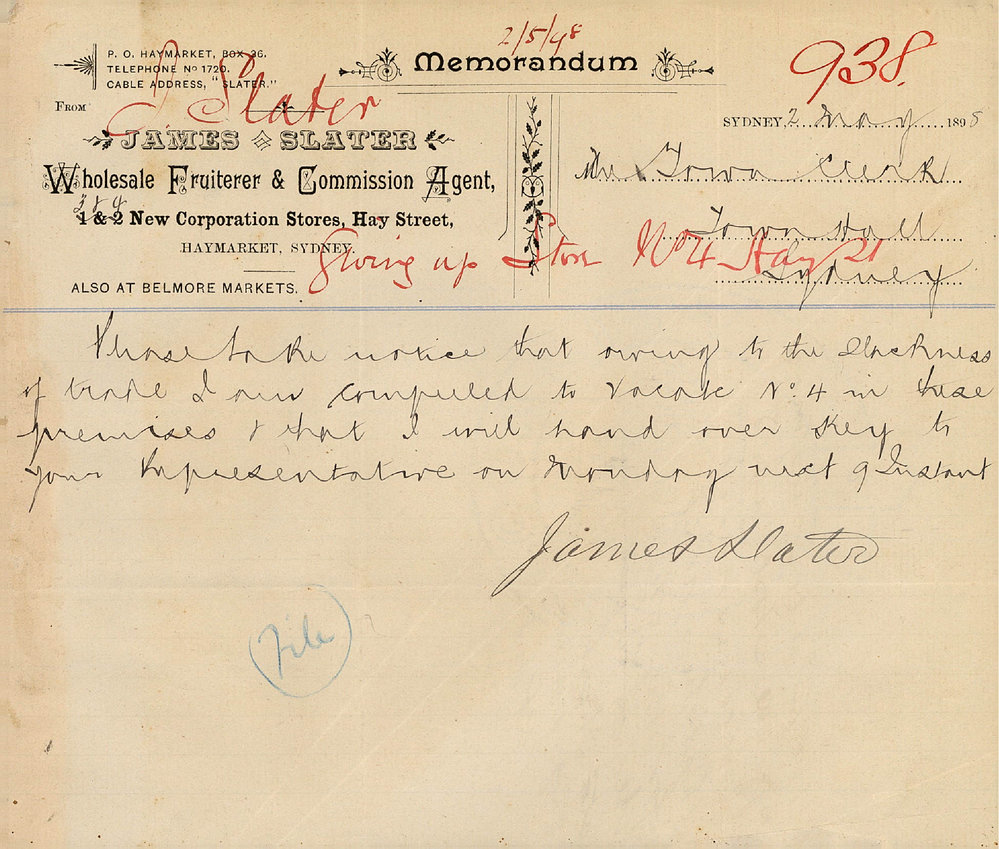 2/5/98
P. O. HAYMARKET, BOX 36.
TELEPHONE No 1720.
CABLE ADDRESS, "SLATER."
Memorandum
938.
FROM
J Slater
JAMES SLATER
SYDNEY, 2 May 1898
Wholesale Fruiterer & Commission Agent,
The Town Clerk
3 & 4
1 & 2 New Corporation Stores, Hay Street,
Town Hall
HAYMARKET, SYDNEY.
Giving up Store No 4 Hay St
Sydney
ALSO AT BELMORE MARKETS.
Please take notice that owing to the slackness
of trade I am compelled to vacate No. 4 in these
premises & that I will hand over key to
your Representative on Monday next 9 Instant
James Slater
File